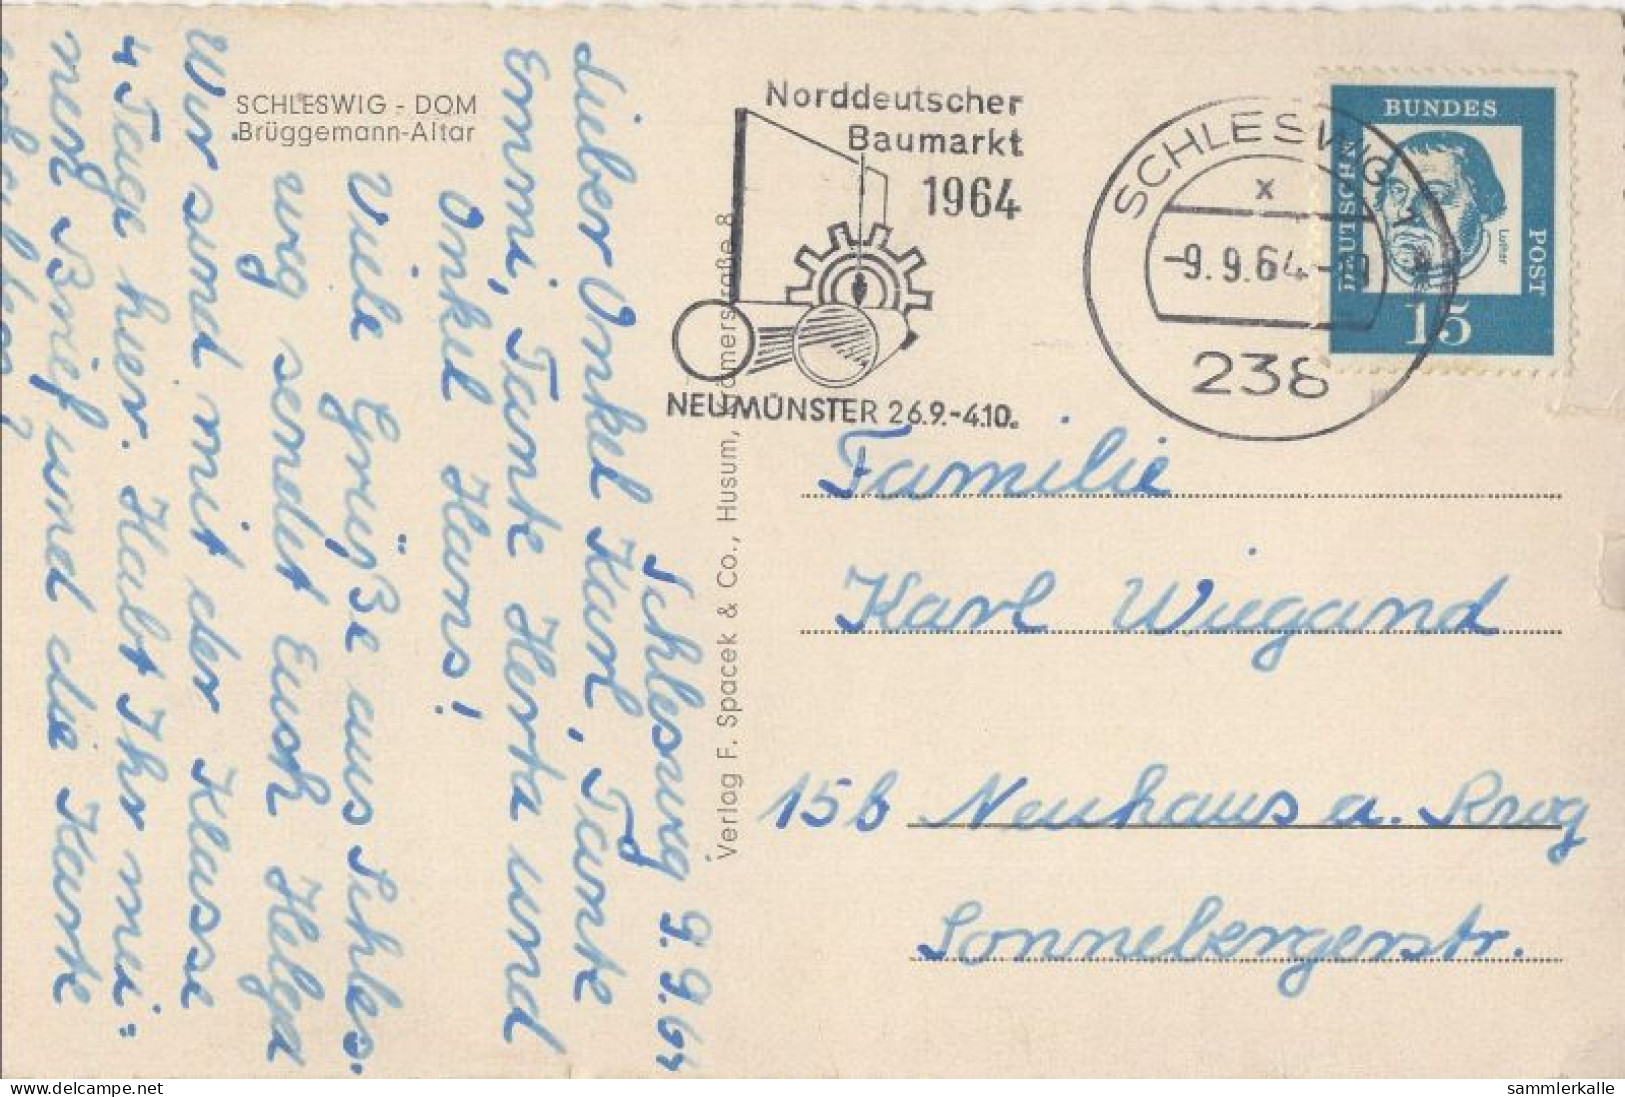 SCHLESWIG - DOM
Brüggemann-Altar
Norddeutscher
Baumarkt
1964
NEUMÜNSTER 26.9.-4.10.
SCHLESWIG 1
x
-9.9.64-
238
BUNDES
DEUTSCHE
POST
Luther
15
Verlag F. Spacek & Co., Husum, Römerstraße 8
Schleswig 9.9.64
Lieber Onkel Karl, Tante
Emmi, Tante Herta und
Onkel Hans!
Viele Grüße aus Schles-
wig sendet Euch Helga
Wir sind mit der Klasse
4 Tage hier. Habt Ihr mei=
nen Brief und die Karte
Familie
Karl Wiegand
15b Neuhaus a. Rrog
Sonnebergerstr.
delcampe.net
sammlerkalle